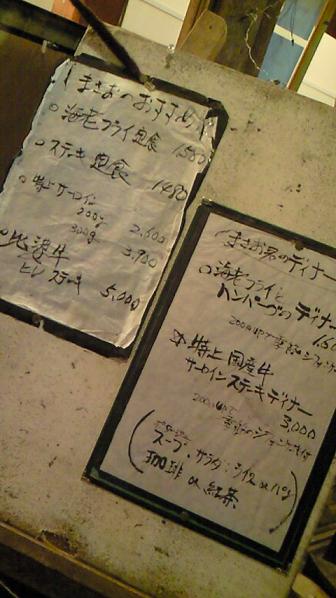 まさおのおすすめ
海老フライ定食 1580
ステーキ定食 1480
特上サーロイン
200g 2,600
300g 3,700
牛
ヒレステーキ 5,000
まさお君のディナー
海老フライと
ハンバーグのディナー
特上国産牛
サーロインステーキディナー
3,000
スープ・サラダ・ライス or パン
珈琲 or 紅茶